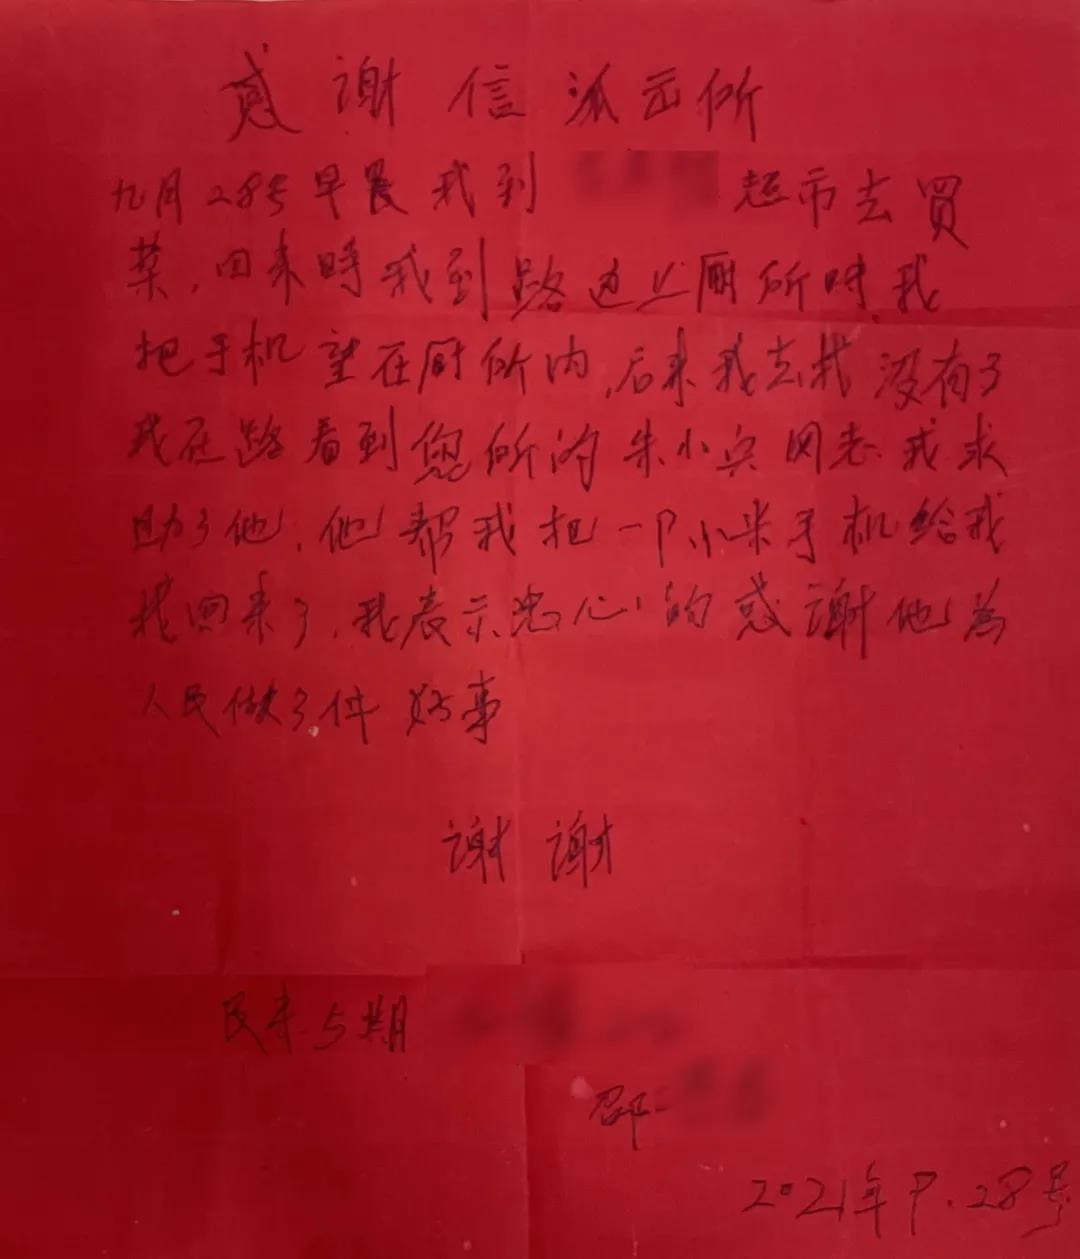 感谢信派出所
九月28号早晨我到 超市去買
菜,回来時我到路边上厕所时,我
把手机望在厕所内,后来我去找没有了
我在路看到您所的朱小兵同志.我求
助了他,他帮我把一个小米手机给我
找回来了,我表示忠心的感谢他為
人民做了件好事
谢谢
民来5期
邵
2021年9.28号